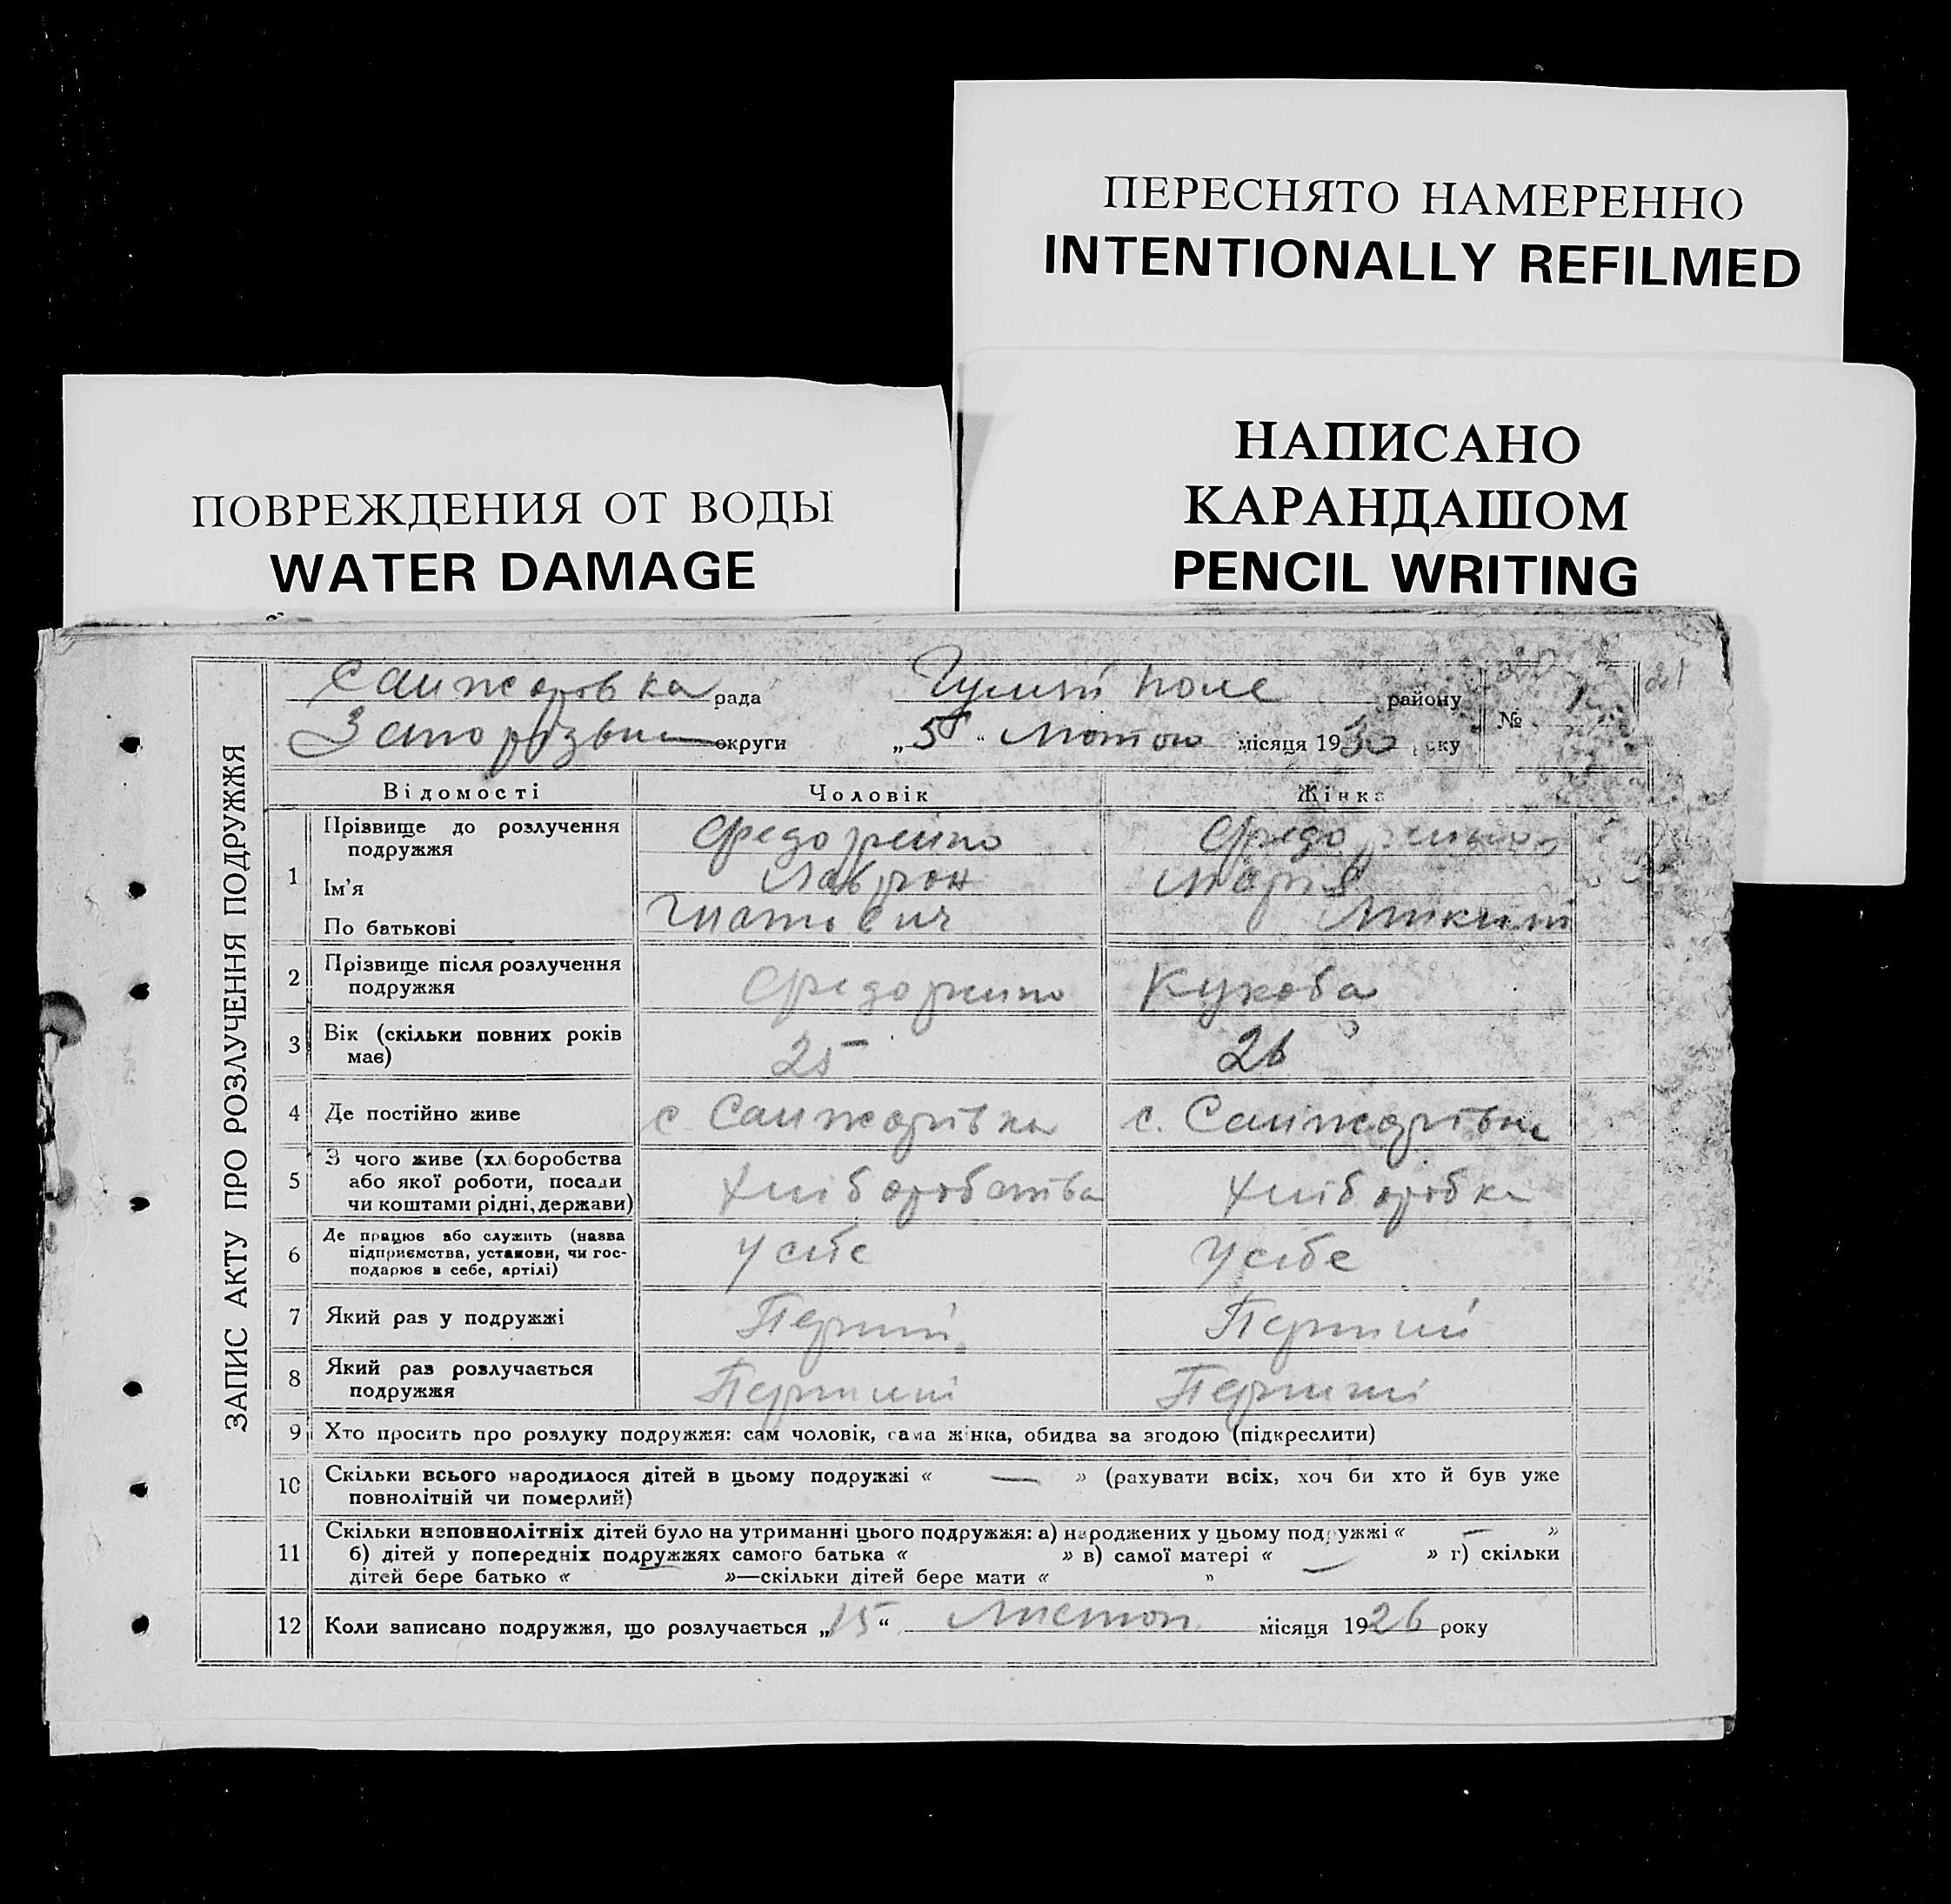 ПЕРЕСНЯТО НАМЕРЕННО
INTENTIONALLY REFILMED
НАПИСАНО
КАРАНДАШОМ
PENCIL WRITING
ПОВРЕЖДЕНИЯ ОТ ВОДЫ
WATER DAMAGE
ЗАПИС АКТУ ПРО РОЗЛУЧЕННЯ ПОДРУЖЖЯ
Санжаровка рада Поле району № 21
округи „5“ Лютого місяця 1930 року
Відомості Чоловік Жінка
1 Прізвище до розлучення
подружжя
Ім'я Лаврон Марія
По батькові
2 Прізвище після розлучення
подружжя
3 Вік (скільки повних років 25 26
має)
4 Де постійно живе с. Санжарівка с. Санжарівка
5 З чого живе (хліборобства
або якої роботи, посади Хліборобства Хліборобка
чи коштами рідні, держави)
6 Де працює або служить (назва
підприємства, установи, чи гос- У себе У себе
подарює в себе, артілі)
7 Який раз у подружжі Перший Перший
8 Який раз розлучається Перший Перший
подружжя
9 Хто просить про розлуку подружжя: сам чоловік, сама жінка, обидва за згодою (підкреслити)
10 Скільки всього народилося дітей в цьому подружжі « — » (рахувати всіх, хоч би хто й був уже
повнолітній чи померлий)
11 Скільки неповнолітніх дітей було на утриманні цього подружжя: а) народжених у цьому подружжі « — »
б) дітей у попередніх подружжях самого батька « » в) самої матері « — » г) скільки
дітей бере батько « »—скільки дітей бере мати « »
12 Коли записано подружжя, що розлучається „15“ Листоп місяця 1926 року